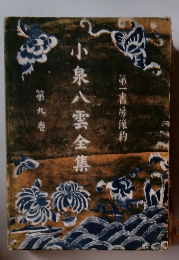 第一書房豫約
小泉八雲全集
第九巻